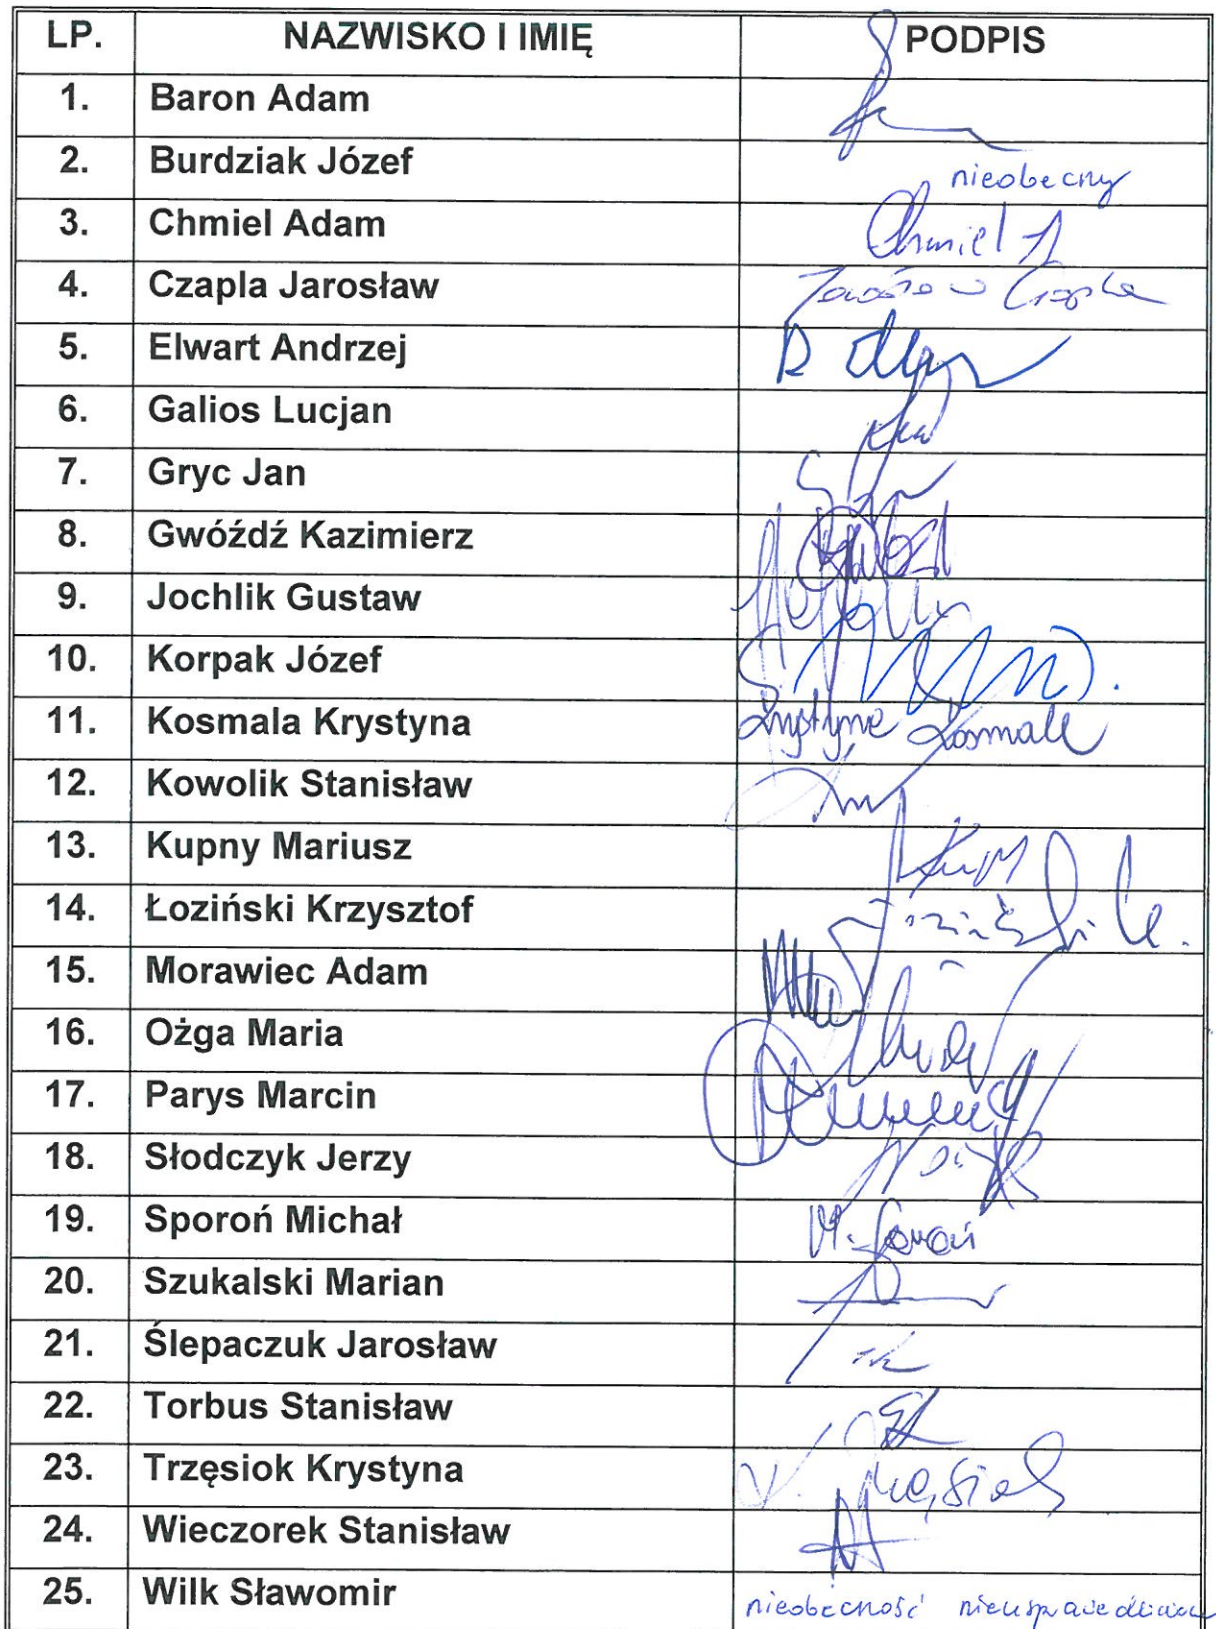 LP. NAZWISKO I IMIĘ PODPIS
1. Baron Adam
2. Burdziak Józef nieobecny
3. Chmiel Adam Chmiel A
4. Czapla Jarosław Jarosław Czapla
5. Elwart Andrzej
6. Galios Lucjan
7. Gryc Jan
8. Gwóźdź Kazimierz
9. Jochlik Gustaw
10. Korpak Józef
11. Kosmala Krystyna Krystyna Kosmala
12. Kowolik Stanisław
13. Kupny Mariusz
14. Łoziński Krzysztof
15. Morawiec Adam
16. Ożga Maria
17. Parys Marcin
18. Słodczyk Jerzy
19. Sporoń Michał M. Sporoń
20. Szukalski Marian
21. Ślepaczuk Jarosław
22. Torbus Stanisław
23. Trzęsiok Krystyna K. Trzęsiok
24. Wieczorek Stanisław
25. Wilk Sławomir nieobecność nieusprawiedliwiona